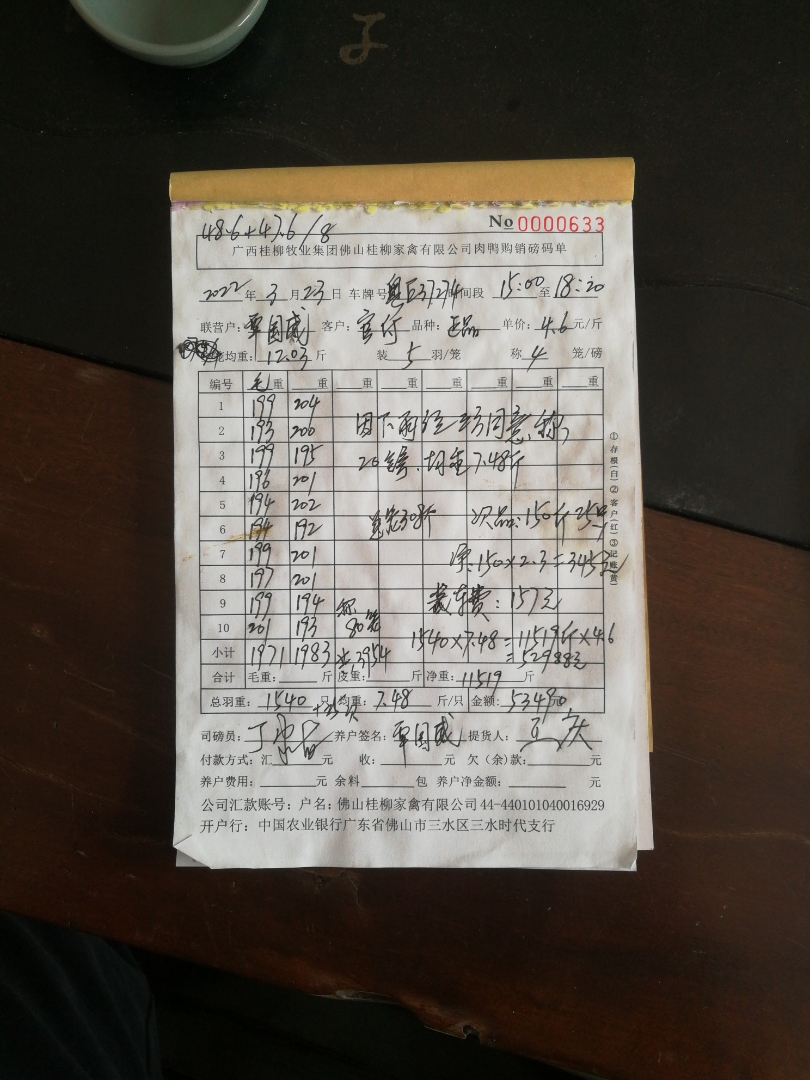 48.6+47.6/8
No 0000633
广西桂柳牧业集团佛山桂柳家禽有限公司肉鸭购销磅码单
2022年3月23日 车牌号 时间段 15:00至18:20
联营户:覃国威 客户: 品种:正品 单价:4.6元/斤
均重:12.03斤 装5羽/笼 称4笼/磅
编号 毛重 重 重 重 重 重 重 重
1 199 204
2 193 200
3 199 195
4 196 201
5 194 202
6 194 192
7 199 201
8 197 201
9 199 194
10 201 193
小计 1971 1983
因下雨经 同意,称
20 均重7.48斤
总 308 次品:150斤 25只
净:150×2.3=345元
装车费:157元
称
80笼
3954
1540×7.48=11519斤×4.6
=52988元
合计 毛重: 斤 皮重: 斤 净重:11519斤
总羽重:1540只 均重:7.48斤/只 金额:53490
+25只
司磅员: 养户签名:覃国威 提货人:
付款方式:汇 元 收: 元 欠(余)款: 元
养户费用: 元 余料 包 养户净金额: 元
公司汇款账号:户名:佛山桂柳家禽有限公司44-440101040016929
开户行:中国农业银行广东省佛山市三水区三水时代支行
①存根(白)②客户(红)③记账(黄)